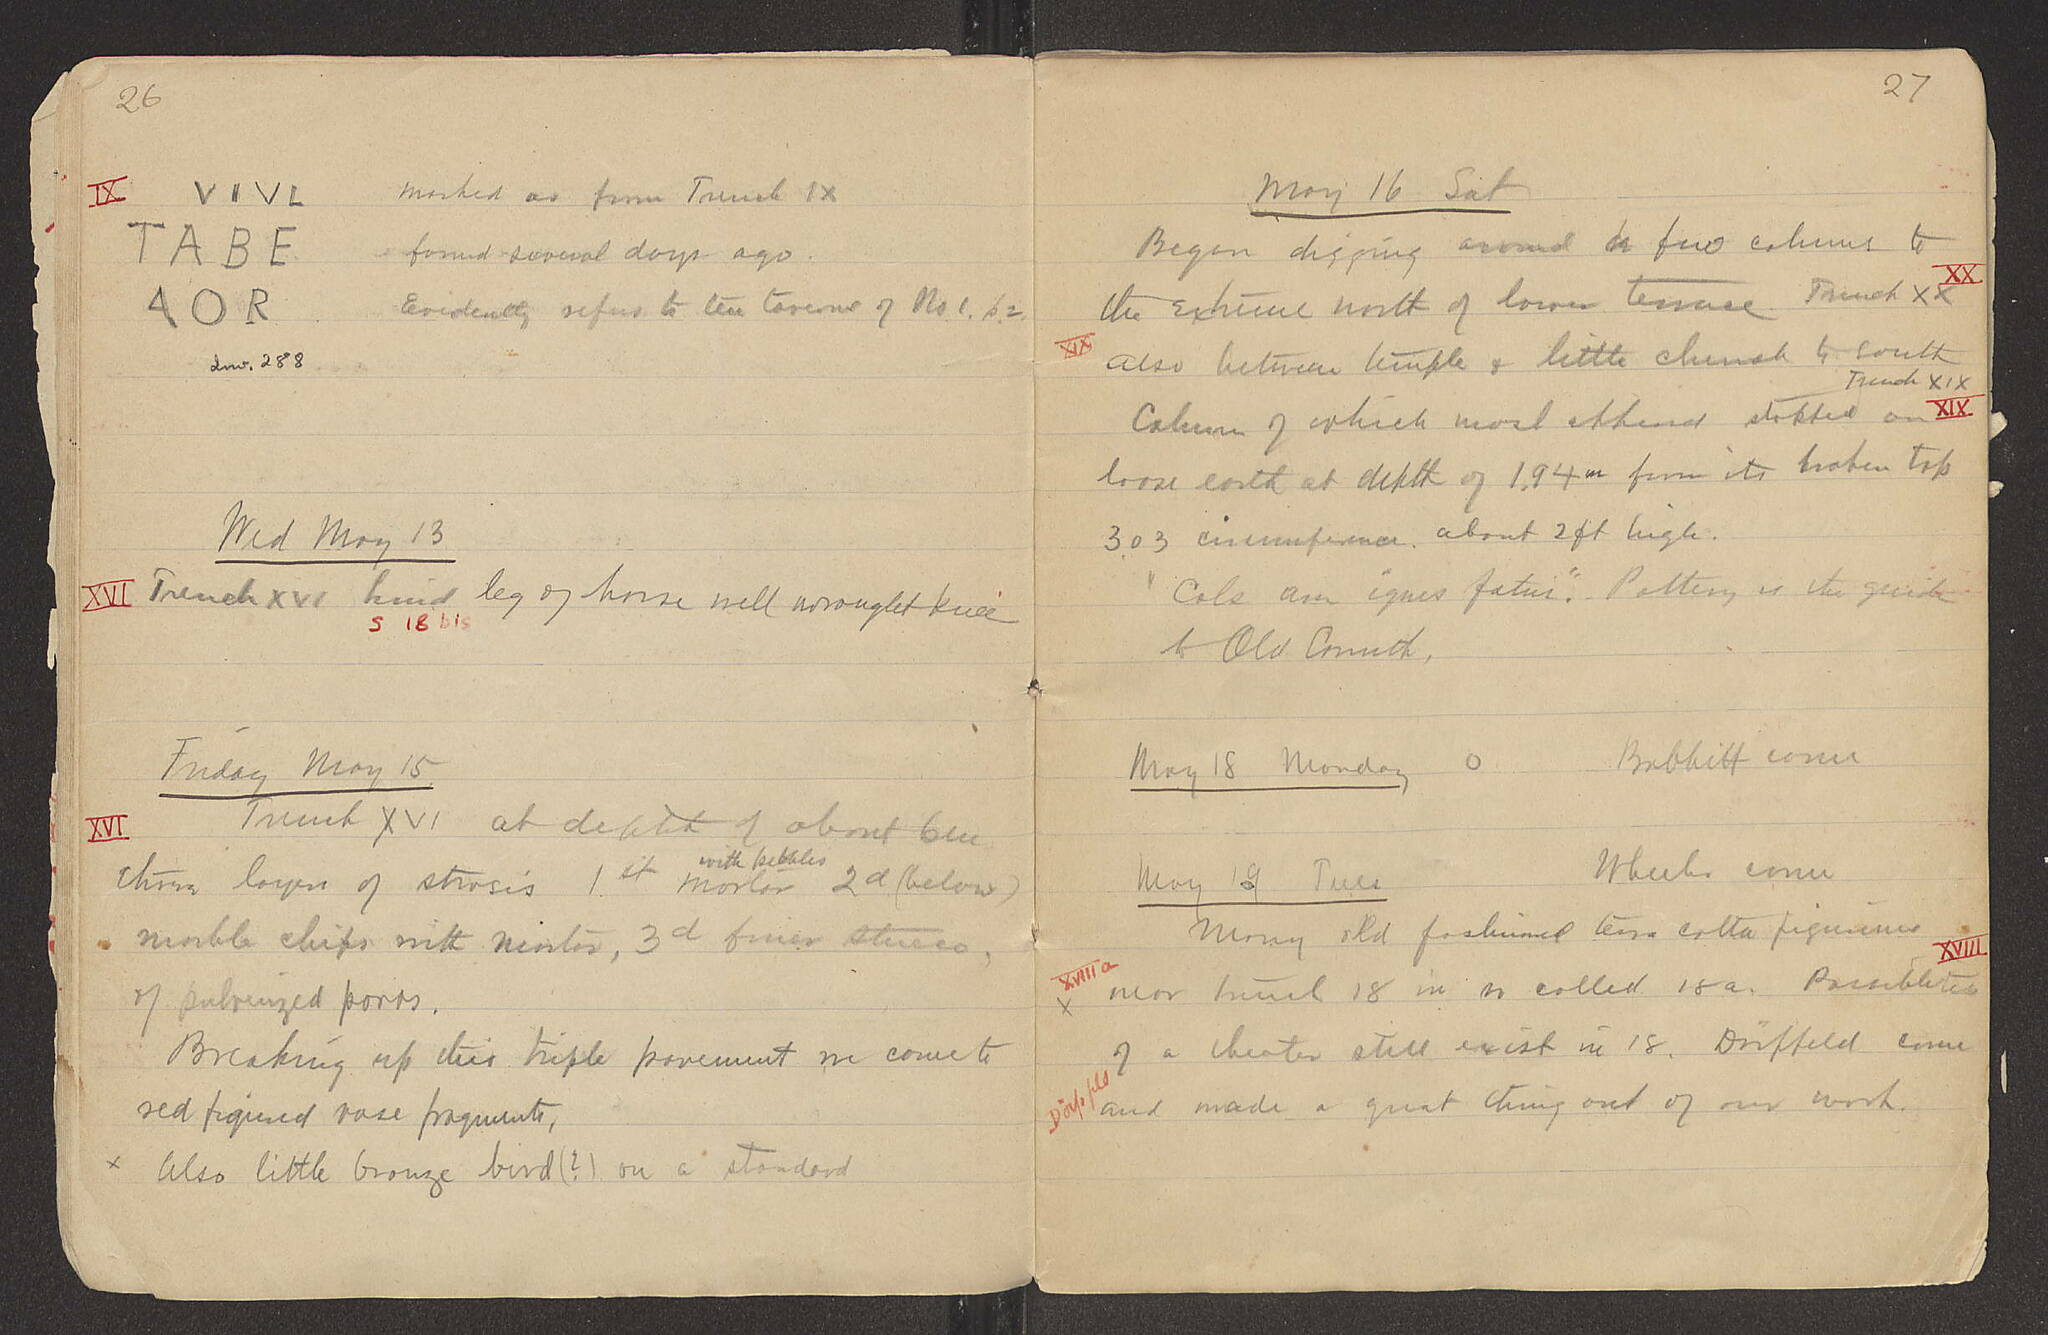 26
IX VIVL marked as from Trench IX
TABE found several days ago.
AOR Evidently refers to ten taverns of No 1. p. 2.
Inv. 288
Wed May 13
XVI Trench XVI hind leg of horse well wrought knee
S 18 bis
Friday May 15
XVI Trench XVI at depth of about 6 m
three layers of strosis 1st mortar with pebbles 2d (below)
marble chips with mortar, 3d finer stucco,
of pulverized poros.
Breaking up this triple pavement we come to
red figured vase fragments,
x Also little bronze bird (?) on a standard
27
May 16 Sat
Began digging around a few columns to
the extreme north of lower terrace. Trench XX XX
XIX also between temple & little church to south
Trench XIX
Column of which most stopped on XIX
loose earth at depth of 1.94m from its broken top
3.03 circumference. about 2 ft high.
"Cols are "ignes fatui". Pottery is the guide
to Old Corinth.
May 18 Monday O Babbitt comes
May 19 Tues Wheeler comes
Many old fashioned terra cotta figurines
XVIII
XVIIIa
x near trench 18 in so called 18a. Possibilities
of a theater still exist in 18. Dörpfeld came
Dörpfeld and made a great thing out of our work.